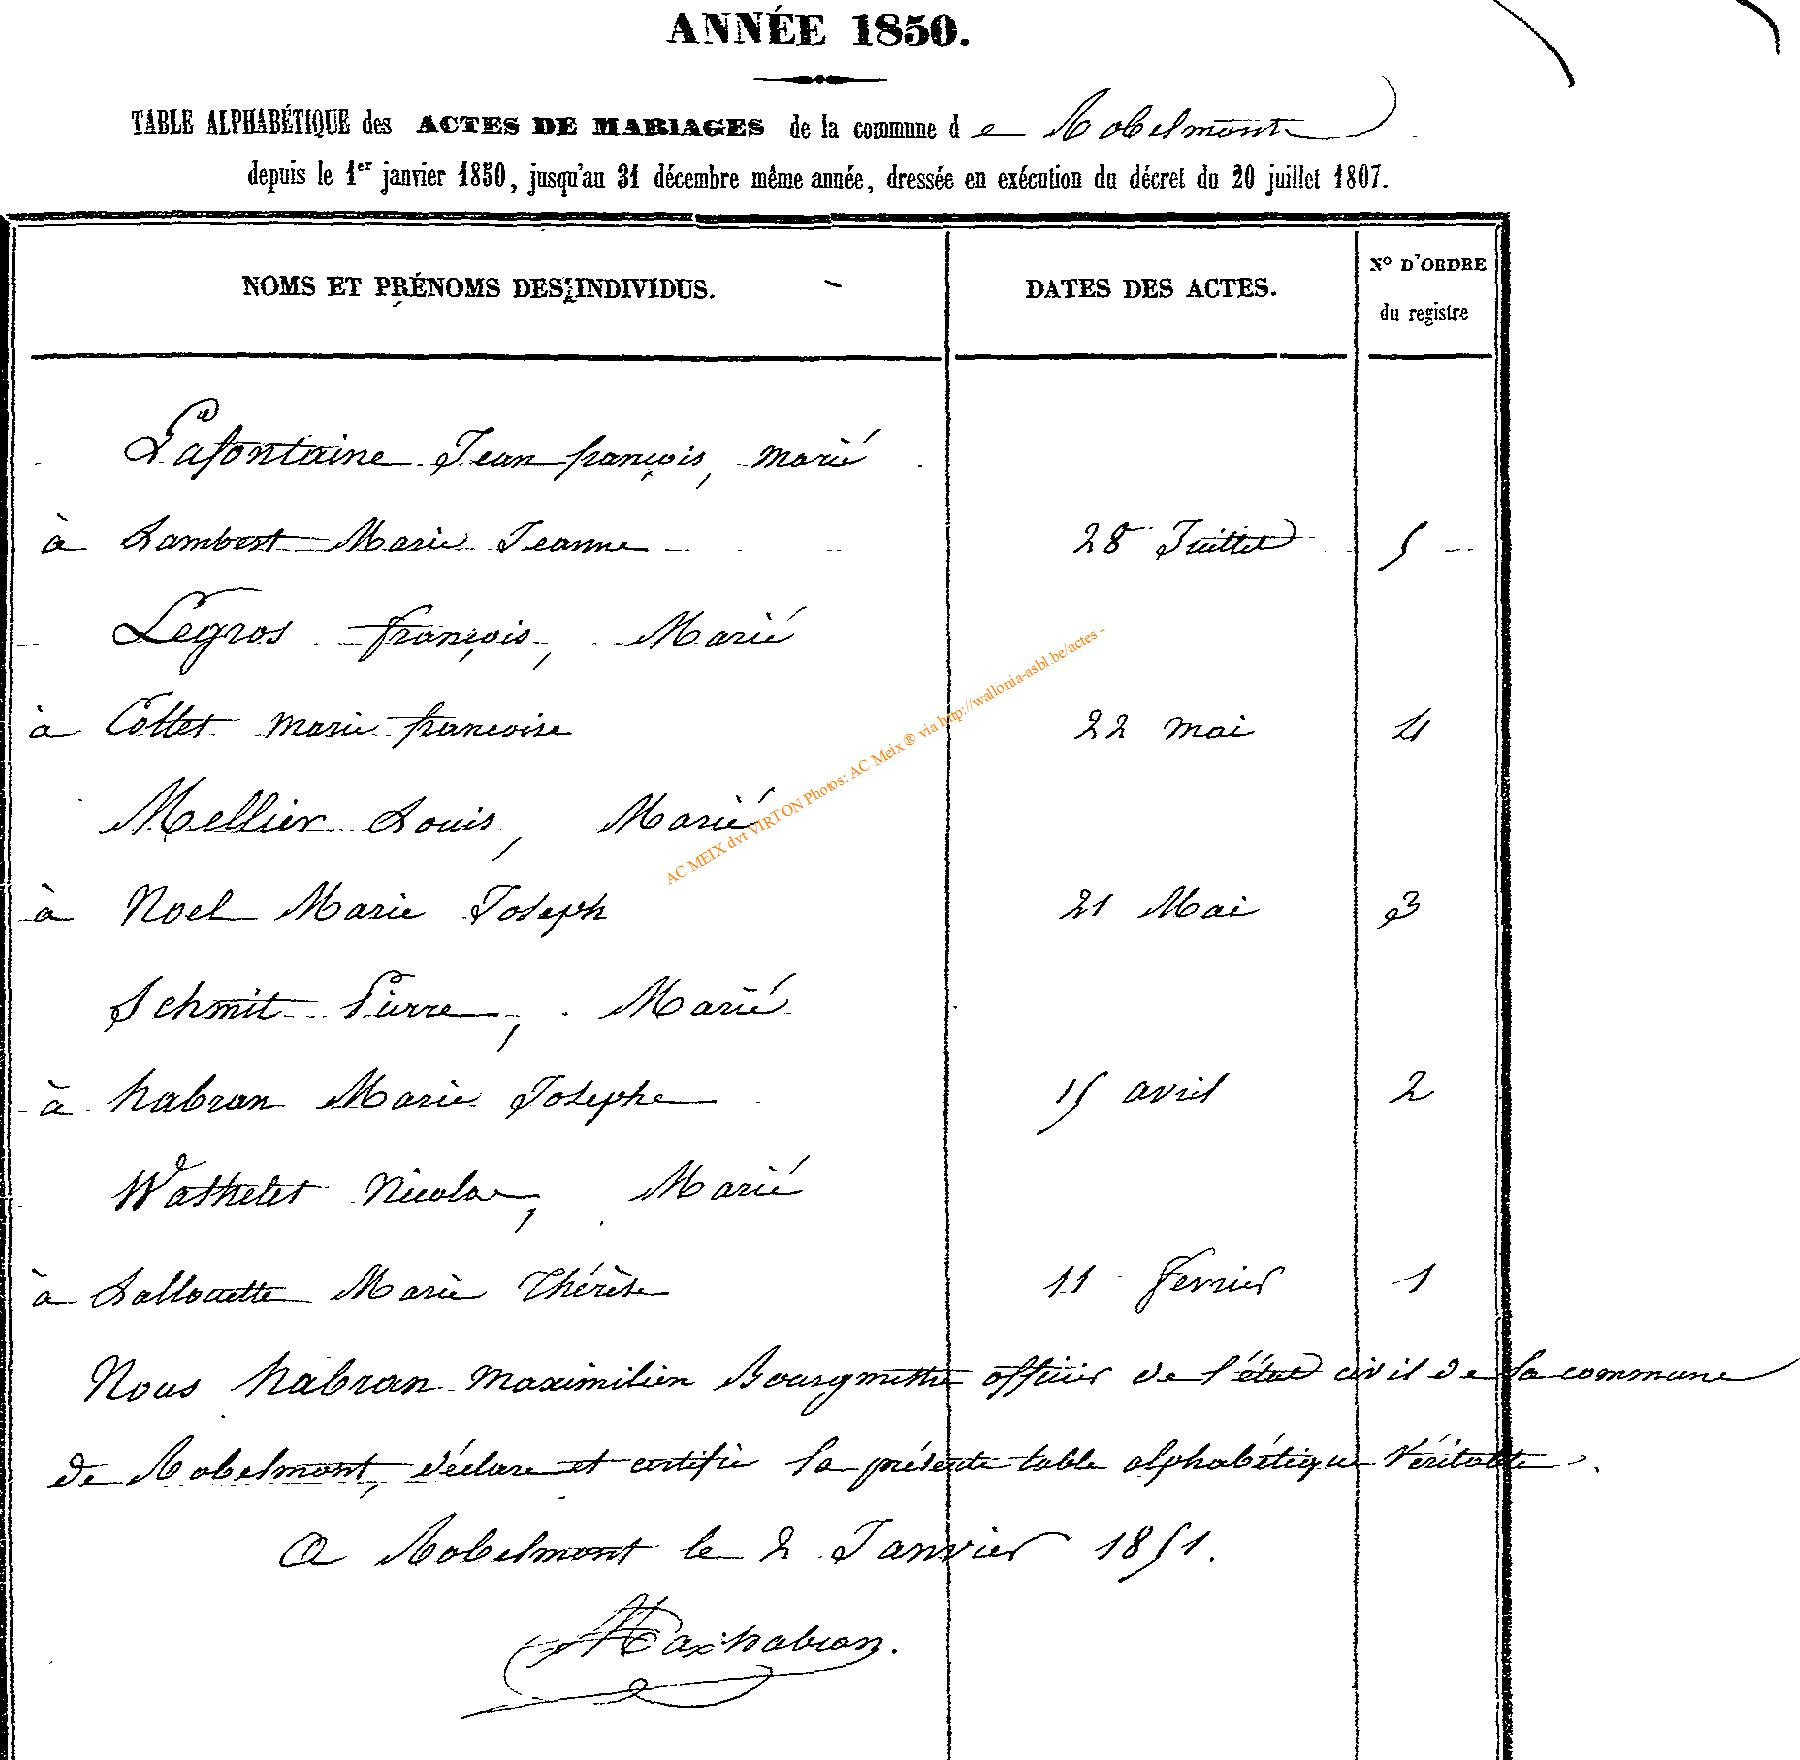 ANNÉE 1850.
TABLE ALPHABÉTIQUE des ACTES DE MARIAGES de la commune de Robelmont
depuis le 1er janvier 1850, jusqu'au 31 décembre même année, dressée en exécution du décret du 20 juillet 1807.
NOMS ET PRÉNOMS DES INDIVIDUS. DATES DES ACTES. N° D'ORDRE
du registre
Lafontaine Jean françois, marié
à Lambert Marie Jeanne 28 Juillet 5
Legros françois, Marié
à Collet marie francoise 22 mai 4
AC MEIX dvt VIRTON Photos: AC Meix ® via http://wallonia-asbl.be/actes -
Mellier Louis, Marié
à Noel Marie Joseph 21 Mai 3
Schmit Pierre, Marié
à habran Marie Josephe 15 avril 2
Wathelet Nicolas, Marié
à Lallouette Marie Thérèse 11 fevrier 1
Nous habran maximilien Bourgmettre officier de l'état civil de la commune
de Robelmont, déclare et certifie la présente table alphabétique Véritable.
A Robelmont le 2 Janvier 1851.
Maxhabran.